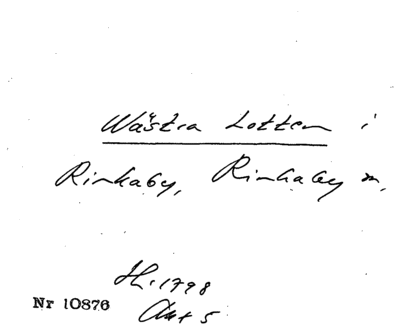 Wästra Lotten i
Rinkaby, Rinkaby n,
H. 1798
Akt 5
Nr 10876